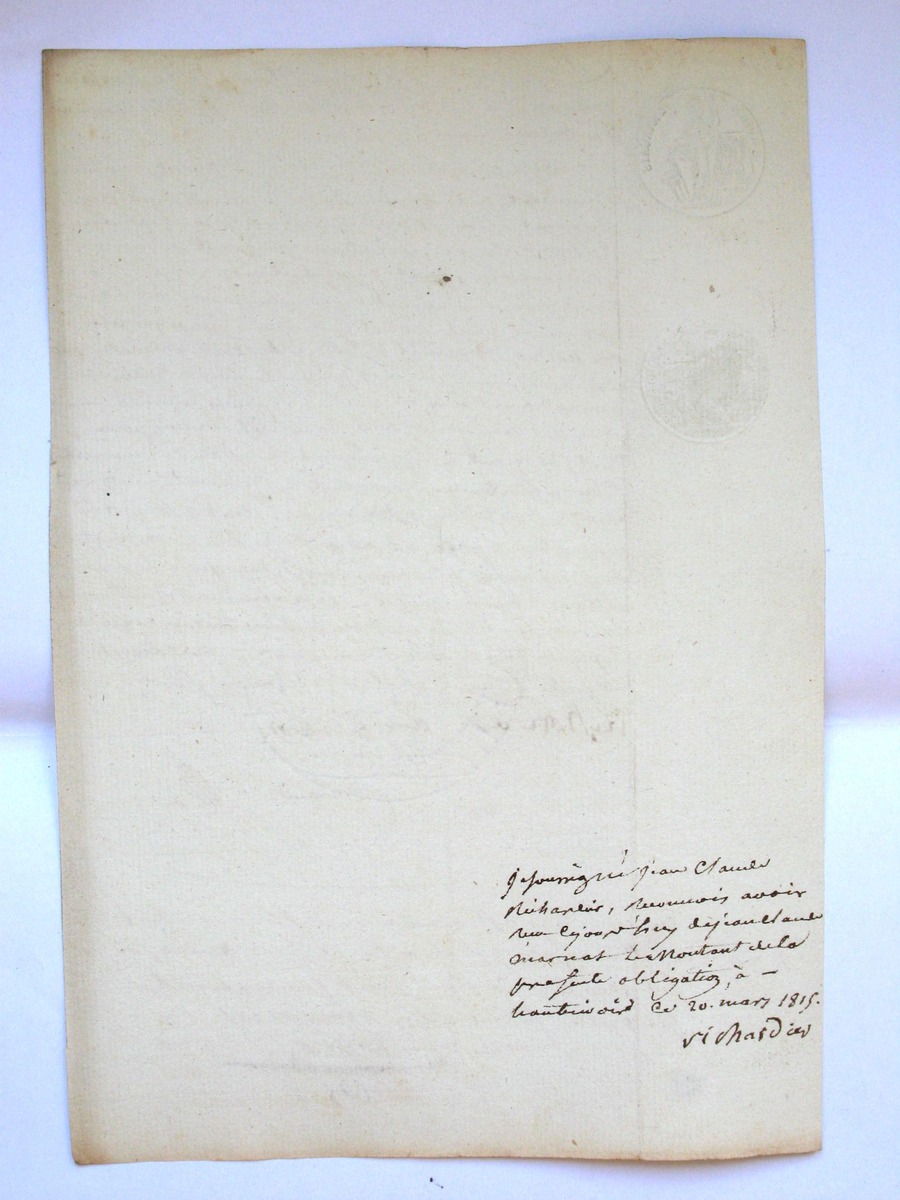 Je soussigné jean Claude
Richardier, Reconnois avoir
reçu cejourd'huy dejean Claude
marnat Le Montant de la
presente obligation, à —
ce 20. mars 1815.
richardier